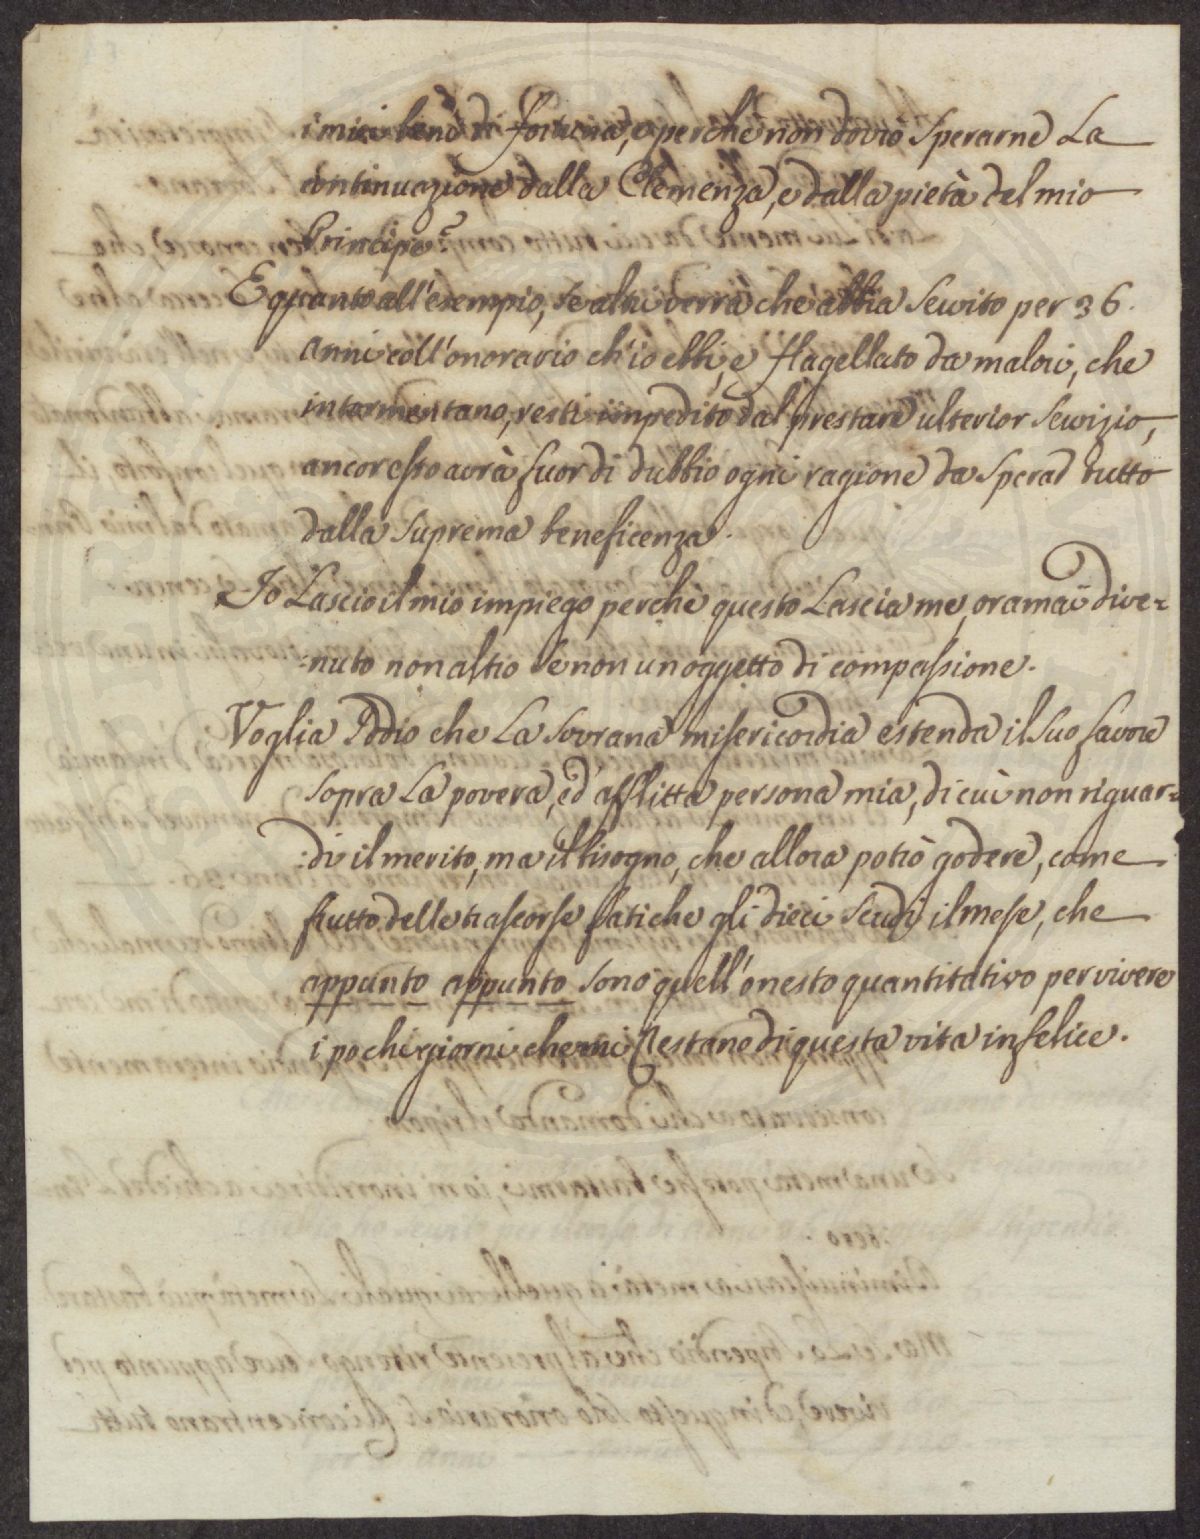 i miei beni di fortuna, e perche non dovrò sperarne La
continuazione dalla Clemenza, e dalla pietà del mio
Principe?
E quanto all'esempio, se altri verrà che abbia servito per 36.
anni coll'onorario ch'io ebbi, e flagellato da malori, che
intormentano, resti impedito dal prestare ulterior servizio,
ancor esso avrà fuor di dubbio ogni ragione da sperar tutto
dalla suprema beneficenza.
Io Lascio il mio impiego perchè questo Lascia me, oramai dive=
:nuto non altro se non un oggetto di compassione.
Voglia Iddio che La sovrana misericordia estenda il suo favore
sopra La povera, ed afflitta persona mia, di cui non riguar=
:di il merito, ma il bisogno, che allora potrò godere, come
frutto delle trascorse fatiche gli dieci scudi il mese, che
appunto appunto sono quell'onesto quantitativo per vivere
i pochi giorni che mi restano di questa vita infelice.